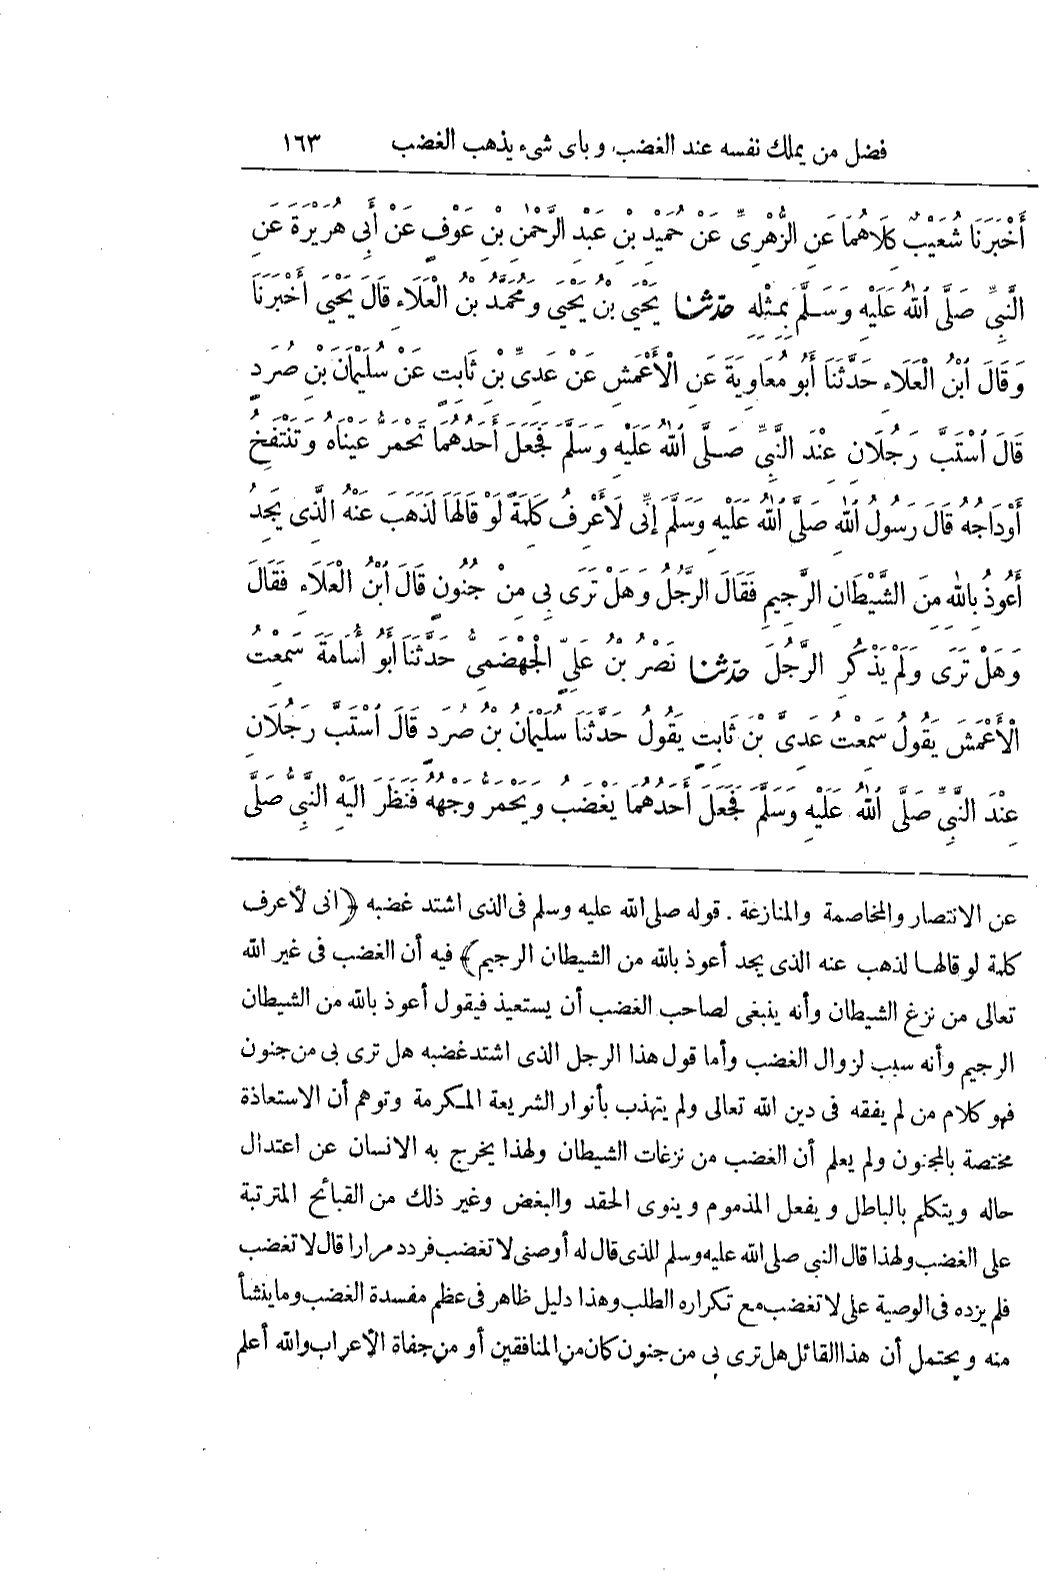 فضل من يملك نفسه عند الغضب وباى شىء يذهب الغضب ١٦٣
أَخْبَرَنَا شُعَيْبٌ كِلَاهُمَا عَنِ الزُّهْرِىِّ عَنْ حُمَيْدِ بْنِ عَبْدِ الرَّحْمٰنِ بْنِ عَوْفٍ عَنْ أَبِى هُرَيْرَةَ عَنِ
النَّبِىِّ صَلَّى اللّٰهُ عَلَيْهِ وَسَلَّمَ بِمِثْلِهِ حدثنا يَحْيَى بْنُ يَحْيَى وَمُحَمَّدُ بْنُ الْعَلَاءِ قَالَ يَحْيَى أَخْبَرَنَا
وَقَالَ ابْنُ الْعَلَاءِ حَدَّثَنَا أَبُو مُعَاوِيَةَ عَنِ الْأَعْمَشِ عَنْ عَدِىِّ بْنِ ثَابِتٍ عَنْ سُلَيْمَانَ بْنِ صُرَدٍ
قَالَ اسْتَبَّ رَجُلَانِ عِنْدَ النَّبِىِّ صَلَّى اللّٰهُ عَلَيْهِ وَسَلَّمَ فَجَعَلَ أَحَدُهُمَا تَحْمَرُّ عَيْنَاهُ وَتَنْتَفِخُ
أَوْدَاجُهُ قَالَ رَسُولُ اللّٰهِ صَلَّى اللّٰهُ عَلَيْهِ وَسَلَّمَ إِنِّى لَأَعْرِفُ كَلِمَةً لَوْ قَالَهَا لَذَهَبَ عَنْهُ الَّذِى يَجِدُ
أَعُوذُ بِاللّٰهِ مِنَ الشَّيْطَانِ الرَّجِيمِ فَقَالَ الرَّجُلُ وَهَلْ تَرَى بِى مِنْ جُنُونٍ قَالَ ابْنُ الْعَلَاءِ فَقَالَ
وَهَلْ تَرَى وَلَمْ يَذْكُرِ الرَّجُلَ حدثنا نَصْرُ بْنُ عَلِىٍّ الْجَهْضَمِىُّ حَدَّثَنَا أَبُو أُسَامَةَ سَمِعْتُ
الْأَعْمَشَ يَقُولُ سَمِعْتُ عَدِىَّ بْنَ ثَابِتٍ يَقُولُ حَدَّثَنَا سُلَيْمَانُ بْنُ صُرَدٍ قَالَ اسْتَبَّ رَجُلَانِ
عِنْدَ النَّبِىِّ صَلَّى اللّٰهُ عَلَيْهِ وَسَلَّمَ فَجَعَلَ أَحَدُهُمَا يَغْضَبُ وَيَحْمَرُّ وَجْهُهُ فَنَظَرَ الَيْهِ النَّبِىُّ صَلَّى
عن الانتصار والمخاصمة والمنازعة . قوله صلى الله عليه وسلم فى الذى اشتد غضبه ﴿انى لأعرف
كلمة لو قالها لذهب عنه الذى يجد أعوذ بالله من الشيطان الرجيم﴾ فيه أن الغضب فى غير الله
تعالى من نزغ الشيطان وأنه ينبغى لصاحب الغضب أن يستعيذ فيقول أعوذ بالله من الشيطان
الرجيم وأنه سبب لزوال الغضب وأما قول هذا الرجل الذى اشتد غضبه هل ترى بى من جنون
فهو كلام من لم يفقه فى دين الله تعالى ولم يتهذب بأنوار الشريعة المكرمة وتوهم أن الاستعاذة
مختصة بالمجنون ولم يعلم أن الغضب من نزغات الشيطان ولهذا يخرج به الانسان عن اعتدال
حاله ويتكلم بالباطل ويفعل المذموم وينوى الحقد والبغض وغير ذلك من القبائح المترتبة
على الغضب ولهذا قال النبى صلى الله عليه وسلم للذى قال له أوصنى لا تغضب فردد مرارا قال لا تغضب
فلم يزده فى الوصية على لا تغضب مع تكراره الطلب وهذا دليل ظاهر فى عظم مفسدة الغضب وما ينشأ
منه ويحتمل أن هذا القائل هل ترى بى من جنون كان من المنافقين أو من جفاة الأعراب والله أعلم